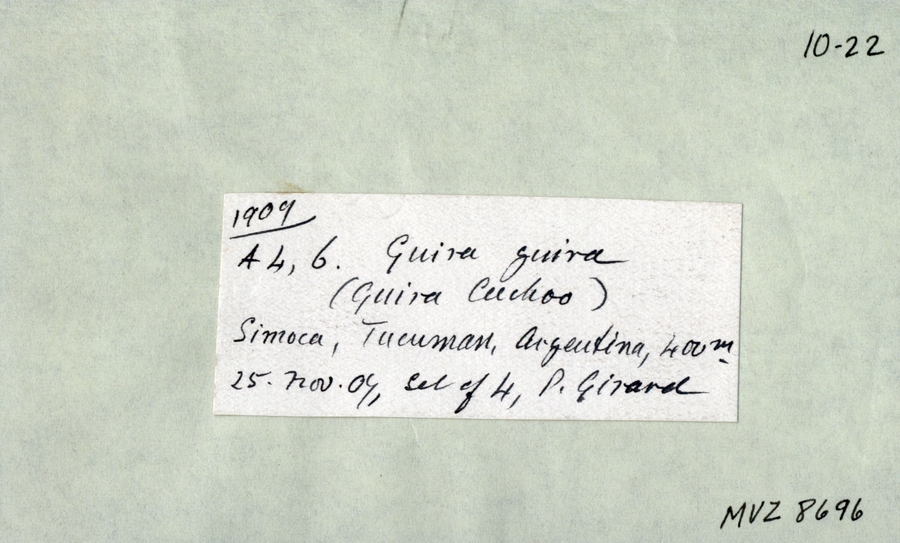 10-22
1909
A 4, 6. Guira guira
(Guira Cuckoo)
Simoca, Tucuman, Argentina, 400m
25. Nov. 09, Set of 4, P. Girard
MVZ 8696